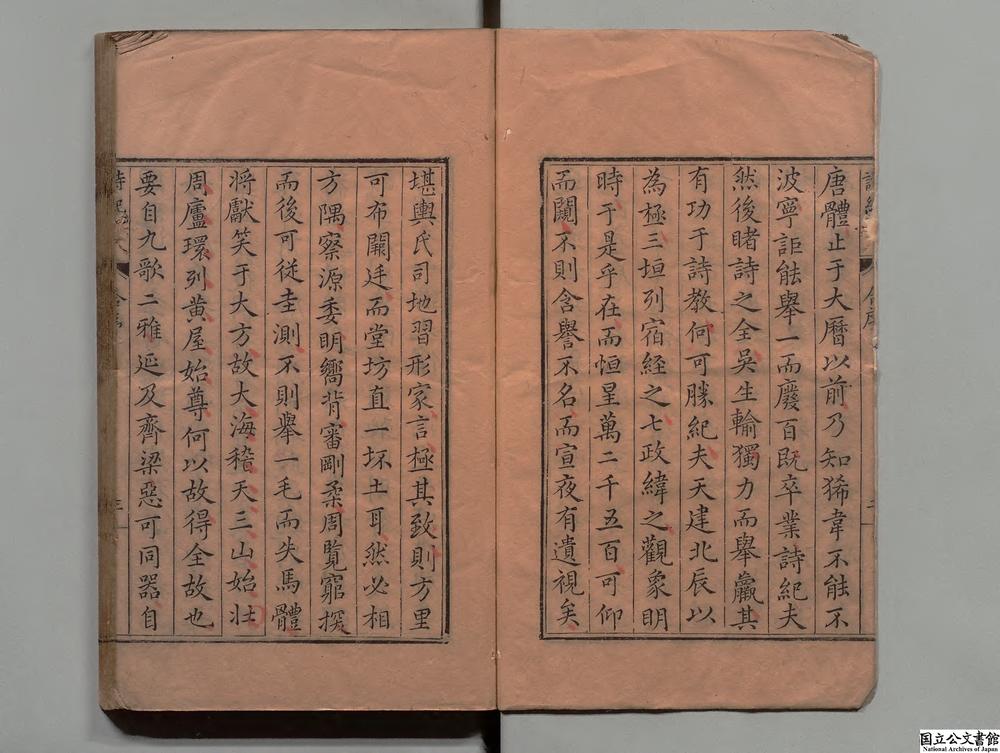 唐體止于大曆以前乃知狶韋不能不
波寧詎能舉一而廢百既卒業詩紀夫
然後睹詩之全吳生輸獨力而舉羸其
有功于詩教何可勝紀夫天建北辰以
為極三垣列宿経之七政緯之觀象明
時于是乎在而恒星萬二千五百可仰
而闚不則含譽不名而宣夜有遺視矣
堪輿氏司地習形家言極其致則方里
可布闢廷而堂坊直一坏土耳然必相
方隅察源委明嚮背審剛柔周覧窮探
而後可従圭測不則舉一毛而失馬體
将獻笑于大方故大海稽天三山始壮
周廬環列黄屋始尊何以故得全故也
要自九歌二雅延及齊梁惡可同器自
国立公文書館
National Archives of Japan